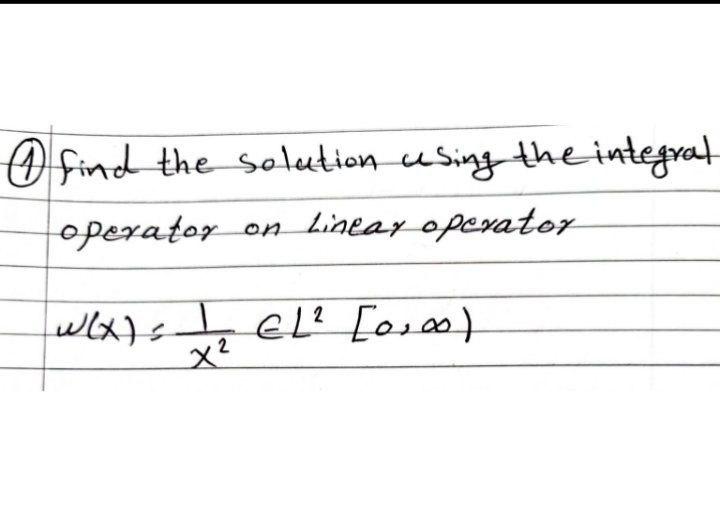 ① find the solution using the integral
operator on Linear operator
w(x) = 1/x² ∈ L² [0,∞)